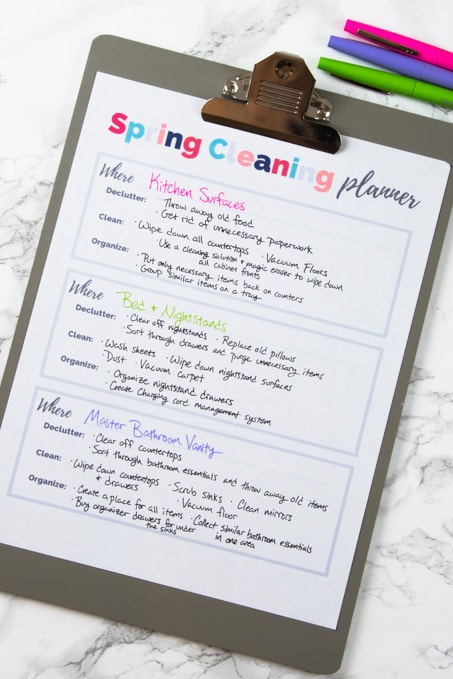 Spring Cleaning planner
Where Kitchen Surfaces
Declutter: · Throw away old food
· Get rid of unnecessary paperwork
Clean: · Wipe down all countertops · Vacuum Floors
· Use a cleaning solution + magic eraser to wipe down
all cabinet fronts
Organize: · Put only necessary items back on counters
· Group similar items on a tray
Where Bed + Nightstands
Declutter: · Clear off nightstands · Replace old pillows
· Sort through drawers and purge unnecessary items
Clean: · Wash sheets · Wipe down nightstand surfaces
· Dust · Vacuum carpet
Organize: · Organize nightstand drawers
· Create Charging cord management system
Where Master Bathroom Vanity
Declutter: · Clear off countertops
· Sort through bathroom essentials and throw away old items
Clean: · Wipe down countertops · Scrub sinks · Clean mirrors
+ drawers · Vacuum floor
Organize: · Create a place for all items · Collect similar bathroom essentials
· Buy organizer drawers for under in one area
the sinks